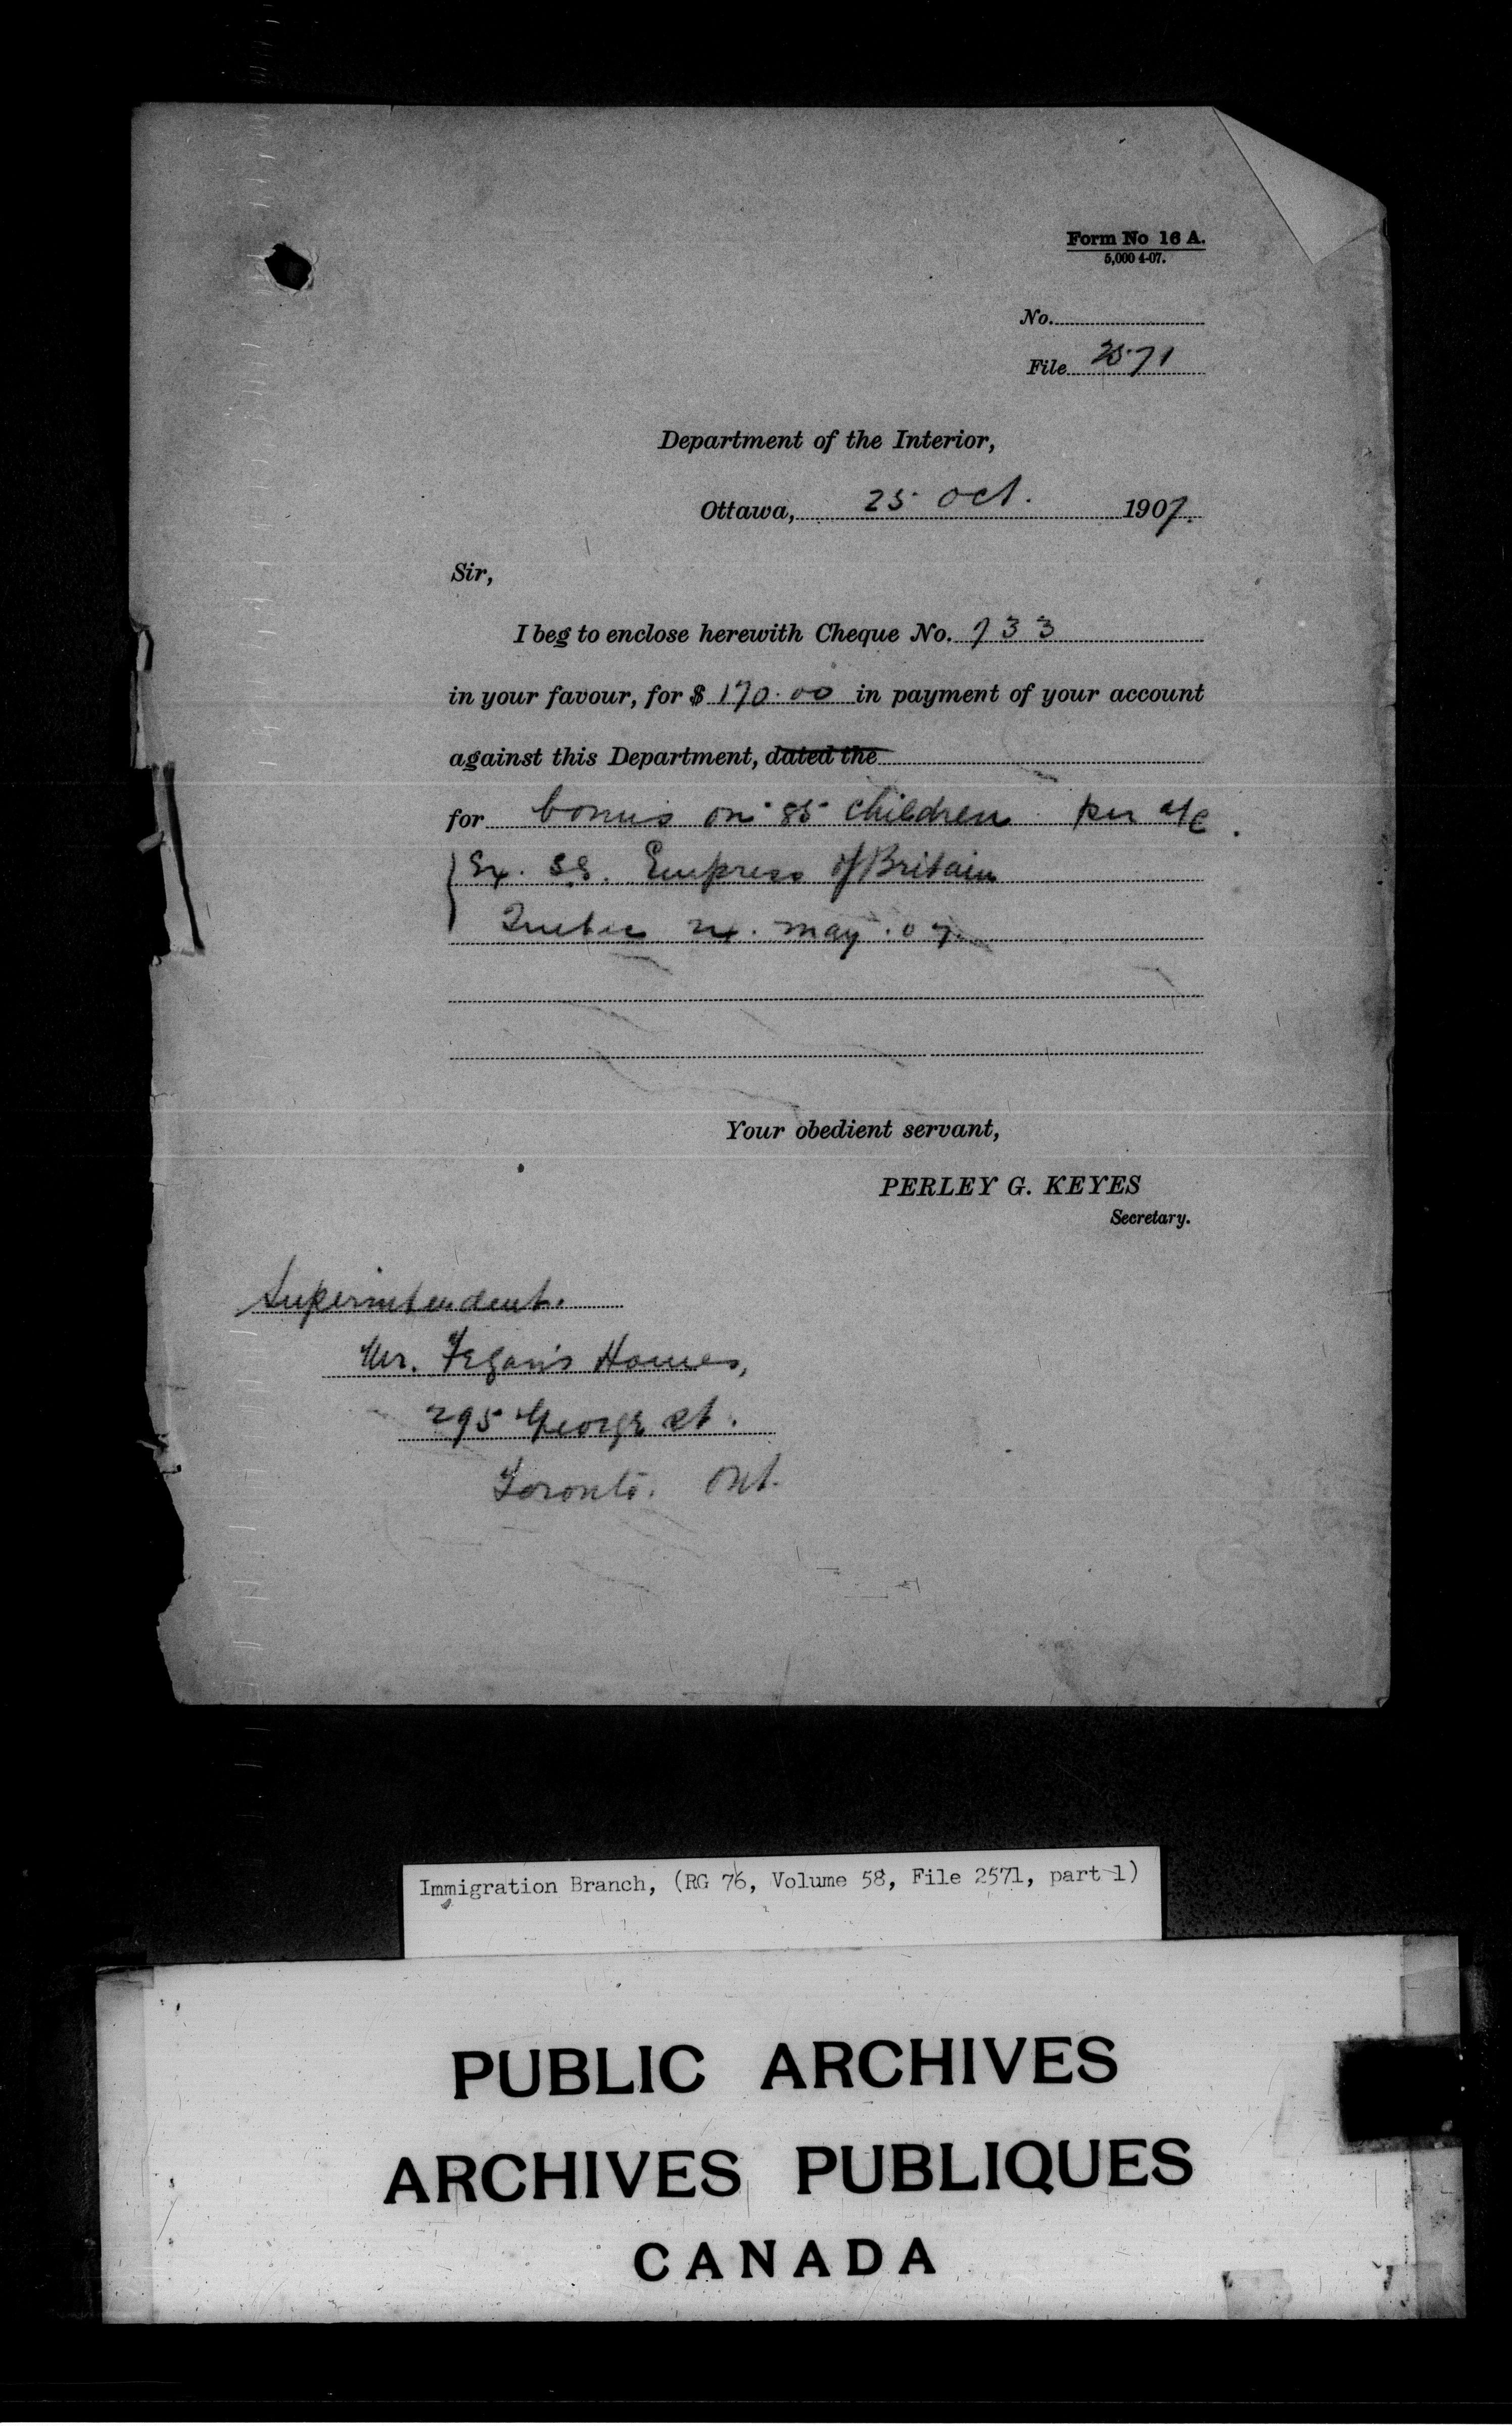 Form No 16 A.
5,000 4-07.
No.
File 2571
Department of the Interior,
Ottawa, 25 Oct. 1907.
Sir,
I beg to enclose herewith Cheque No. 733
in your favour, for $ 170.00 in payment of your account
against this Department, dated the
for bonus on 85 children per a/c.
Ex. SS. Empress of Britain
Quebec 24. May. 07.
Your obedient servant,
PERLEY G. KEYES
Secretary.
Superintendent.
Mr. Fegan's Homes,
295 George St.
Toronto. Ont.
Immigration Branch, (RG 76, Volume 58, File 2571, part 1)
PUBLIC ARCHIVES
ARCHIVES PUBLIQUES
CANADA